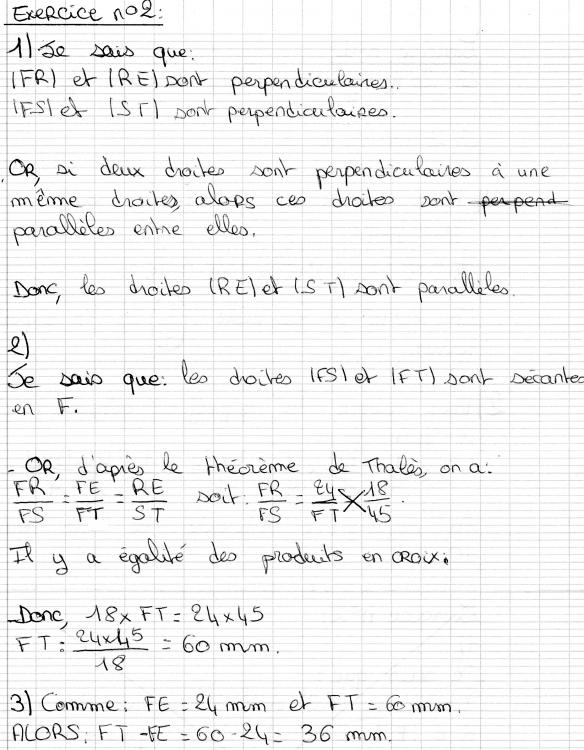 Exercice no2:
1) Je sais que:
(FR) et (RE) sont perpendiculaires.
(FS) et (ST) sont perpendiculaires.
OR, si deux droites sont perpendiculaires à une
même droites, alors ces droites sont perpend
parallèles entre elles.
Donc, les droites (RE) et (ST) sont parallèles.
2)
Je sais que: les droites (FS) et (FT) sont sécantes
en F.
- OR, d'après le théorème de Thalès, on a:
FR/FS = FE/FT = RE/ST soit: FR/FS = 24/FT × 18/45.
Il y a égalité des produits en croix.
-Donc, 18 x FT = 24 x 45
FT = 24x45/18 = 60 mm.
3) Comme: FE = 24 mm et FT = 60 mm.
ALORS: FT - FE = 60 - 24 = 36 mm.